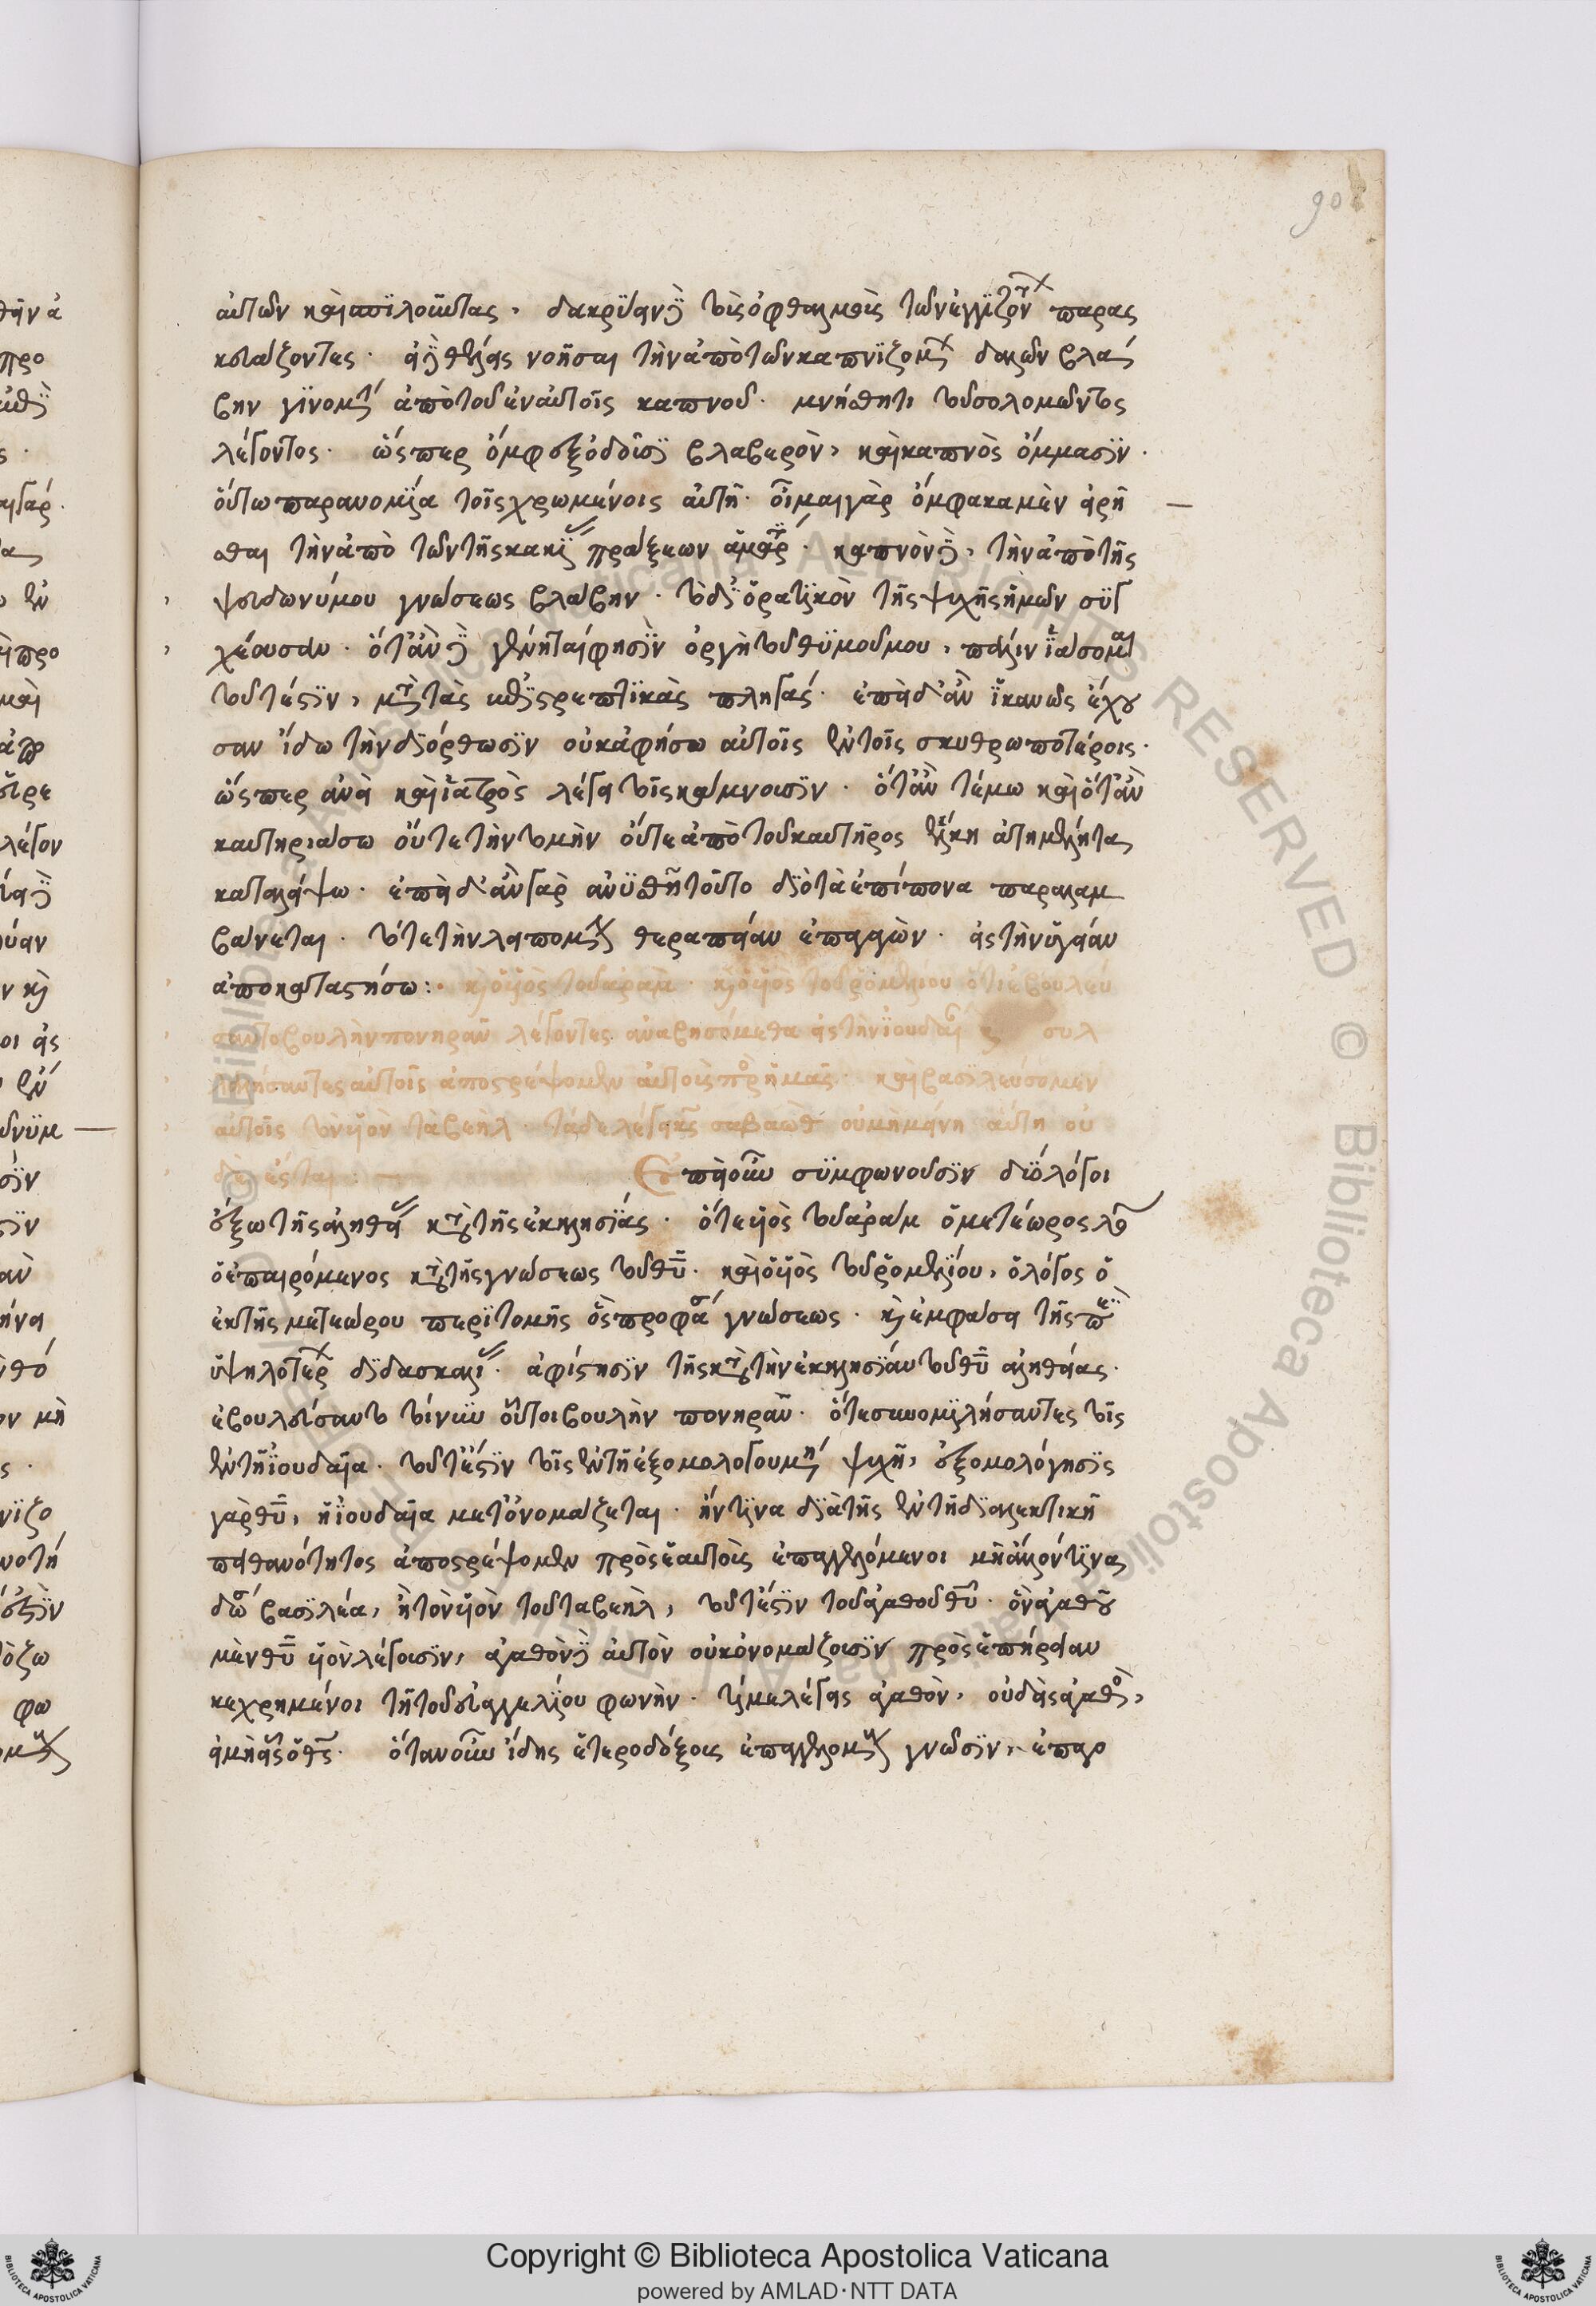 αὐτῶν καὶ ἀπειλοῦντας. δακρύειν δὲ τοὺς ὀφθαλμοὺς τῶν ἐγγιζόντων παρασ
κευάζοντες. εἰ δὲ θέλεις νοῆσαι τὴν ἀπὸ τῶν καπνιζομένων δαλῶν βλά
βην γινομένην ἀπὸ τοῦ ἐν αὐτοῖς καπνοῦ. μνήσθητι τοῦ σολομῶντος
λέγοντος. ὥσπερ ὄμφαξ ὀδοῦσι βλαβερὸν, καὶ καπνὸς ὄμμασιν.
οὕτω παρανομία τοῖς χρωμένοις αὐτῇ. οἶμαι γὰρ ὄμφακα μὲν εἰρῆ
σθαι τὴν ἀπὸ τῶν τῆς κακίας πράξεων ἁμαρτίαν. καπνὸν δὲ, τὴν ἀπὸ τῆς
ψευδωνύμου γνώσεως βλάβην. τὸ διορατικὸν τῆς ψυχῆς ἡμῶν συγ
χέουσαν. ὅταν δὲ γένηται φησὶν ὀργὴ τοῦ θυμοῦ μου, πάλιν ἰάσομαι
τουτέστιν, μετὰ τὰς ἐπιστρεπτικὰς πληγάς. ἐπειδὰν ἱκανῶς ἔχου
σαν ἴδω τὴν διόρθωσιν οὐκ ἀφήσω αὐτοῖς ἐν τοῖς σκυθρωποτέροις.
ὥσπερ ἂν εἰ καὶ ἰατρὸς λέγει τοῖς κάμνουσιν. ὅταν τέμω καὶ ὅταν
καυτηριάσω οὔτε τὴν τομὴν οὔτε ἀπὸ τοῦ καυτῆρος ἕλκη ἀτημέλητα
καταλείψω. ἐπειδὰν γὰρ ἀνυσθῇ τοῦτο διὸ τὰ ἐπίπονα παραλαμ
βάνεται. τότε τὴν λειπομένην θεραπείαν ἐπαγαγὼν. εἰς τὴν ὑγείαν
ἀποκαταστήσω: καὶ ὁ υἱὸς τοῦ ἀρὰμ. καὶ ὁ υἱὸς τοῦ ῥομελίου ὅτι ἐβουλεύ
σαντο βουλὴν πονηρὰν λέγοντες ἀναβησόμεθα εἰς τὴν ἰουδαίαν καὶ συλ
λαλήσαντες αὐτοῖς ἀποστρέψομεν αὐτοὺς πρὸς ἡμᾶς. καὶ βασιλεύσομεν
αὐτοῖς τὸν υἱὸν ταβεὴλ. τάδε λέγει κς σαβαὼθ οὐ μὴ μείνῃ αὕτη οὐ
δὲ ἔσται: Ἐπεὶ οὖν συμφωνοῦσιν δύο λόγοι
ἔξω τῆς ἀληθείας κατὰ τῆς ἐκκλησίας. ὅ τε υἱὸς τοῦ ἀρὰμ ὁ μετέωρος λόγος
ὁ ἐπαιρόμενος κατὰ τῆς γνώσεως τοῦ θῦ. καὶ ὁ υἱὸς τοῦ ῥομελίου, ὁ λόγος ὁ
ἐκ τῆς μετεώρου περιτομῆς ὃς προφάσει γνώσεως. καὶ ἐμφάσει τῆς
ὑψηλοτέρας διδασκαλίας. ἀφίστησιν τῆς κατὰ τὴν ἐκκλησίαν τοῦ θῦ ἀληθείας.
ἐβουλεύσαντο τοίνυν οὗτοι βουλὴν πονηρὰν. ὅτε συνομιλήσαντες τοῖς
ἐν τῇ ἰουδαίᾳ. τουτέστιν τοῖς ἐν τῇ ἐξομολογουμένῃ ψυχῇ, ἐξομολόγησις
γὰρ θῦ, ἡ ἰουδαία μετονομάζεται. ἥντινα διὰ τῆς ἐν τῇ διαλεκτικῇ
πιθανότητος ἀποστρέψομεν πρὸς ἑαυτοὺς ἐπαγγελόμενοι μὴ ἄλλον τινὰ
δώσειν βασιλέα, ἢ τὸν υἱὸν τοῦ ταβεὴλ, τουτέστιν τοῦ ἀγαθοῦ θῦ. ὃν ἀγαθοῦ
μὲν θῦ υἱὸν λέγουσιν, ἀγαθὸν δὲ αὐτὸν οὐκ ὀνομάζουσιν πρὸς ἐπήρειαν
κεχρημένοι τῇ τοῦ εὐαγγελίου φωνὴν. τί με λέγεις ἀγαθὸν, οὐδεὶς ἀγαθὸς,
εἰ μὴ εἷς ὁ θς. ὅταν οὖν ἴδῃς ἑτεροδόξους ἐπαγγελομένους γνῶσιν, ἐπαρ